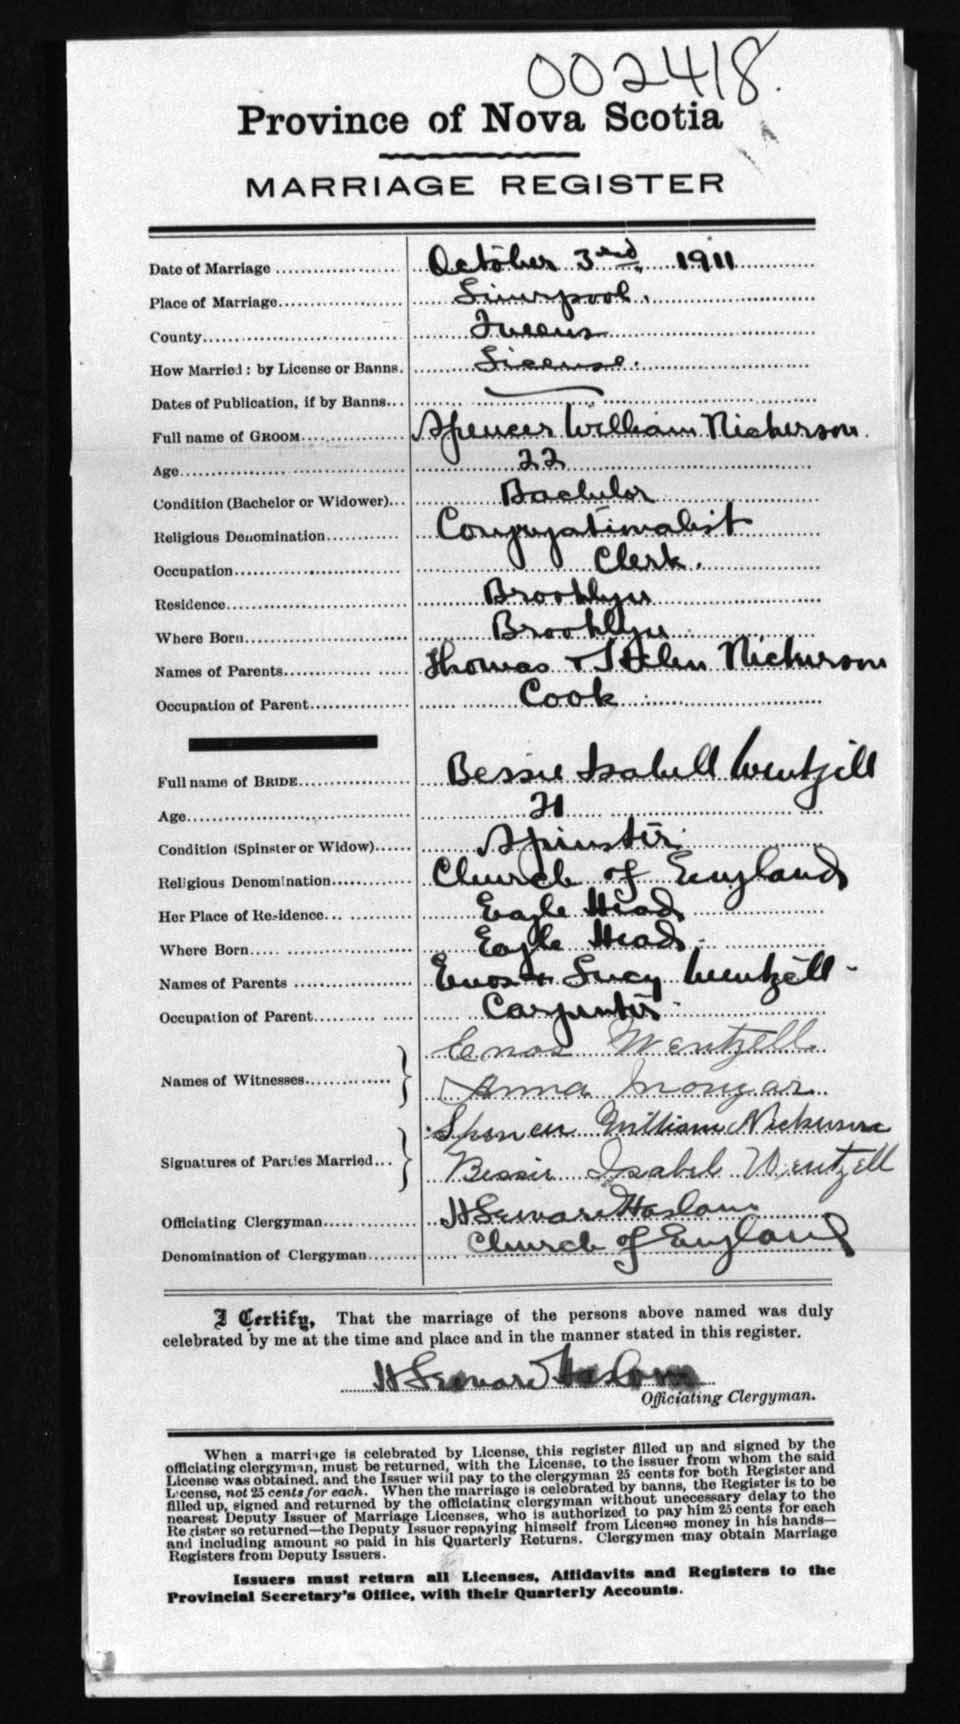 002418.
Province of Nova Scotia
MARRIAGE REGISTER
Date of Marriage October 3rd, 1911
Place of Marriage Liverpool.
County Queens
How Married: by License or Banns. License.
Dates of Publication, if by Banns
Full name of GROOM Spencer William Nickerson.
Age 22
Condition (Bachelor or Widower) Bachelor
Religious Denomination Congregationalist
Occupation Clerk.
Residence Brooklyn
Where Born Brooklyn
Names of Parents Thomas + Helen Nickerson
Occupation of Parent Cook
Full name of BRIDE Bessie Isabell Wentzell
Age 21
Condition (Spinster or Widow) Spinster.
Religious Denomination Church of England
Her Place of Residence Eagle Head
Where Born Eagle Head.
Names of Parents Enos + Lucy Wentzell
Occupation of Parent Carpenter
Enos Wentzell
Names of Witnesses
Anna
Spencer William Nickerson
Signatures of Parties Married
Bessie Isabel Wentzell
Officiating Clergyman H Seward Haslam
Denomination of Clergyman Church of England
I Certify, That the marriage of the persons above named was duly
celebrated by me at the time and place and in the manner stated in this register.
H Seward Haslam
Officiating Clergyman.
When a marriage is celebrated by License, this register filled up and signed by the
officiating clergyman, must be returned, with the License, to the issuer from whom the said
License was obtained, and the Issuer will pay to the clergyman 25 cents for both Register and
License, not 25 cents for each. When the marriage is celebrated by banns, the Register is to be
filled up, signed and returned by the officiating clergyman without unnecessary delay to the
nearest Deputy Issuer of Marriage Licenses, who is authorized to pay him 25 cents for each
Register so returned—the Deputy Issuer repaying himself from License money in his hands—
and including amount so paid in his Quarterly Returns. Clergymen may obtain Marriage
Registers from Deputy Issuers.
Issuers must return all Licenses, Affidavits and Registers to the
Provincial Secretary's Office, with their Quarterly Accounts.